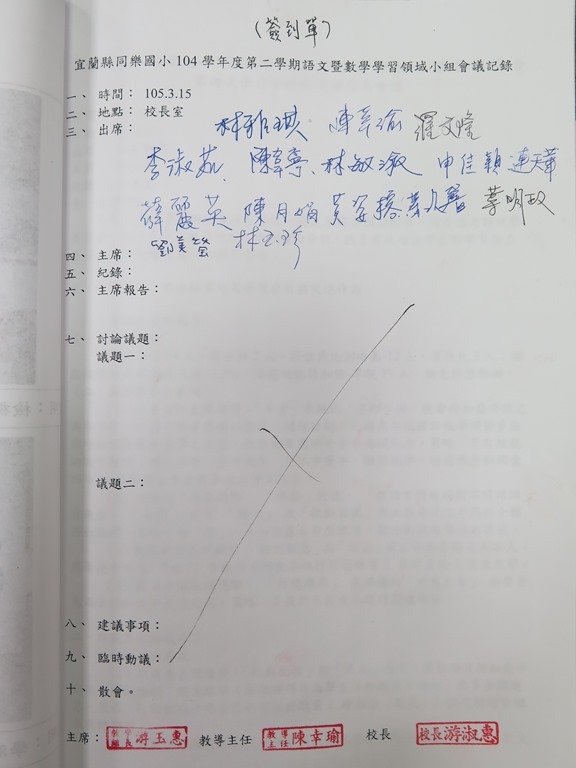 (簽到單)
宜蘭縣同樂國小104學年度第二學期語文暨數學學習領域小組會議記錄
一、 時間： 105.3.15
二、 地點： 校長室
三、 出席： 林雅琪 陳幸瑜 羅文
李淑茹、陳韋寧、林敏淑 申佳穎 連天華
薛麗英 陳月娟 黃 葉 李明政
四、 主席： 劉美螢 林玉珍
五、 紀錄：
六、 主席報告：
七、 討論議題：
議題一：
議題二：
八、 建議事項：
九、 臨時動議：
十、 散會。
主席： 游玉惠 教導主任 教導主任陳幸瑜 校長 校長游淑惠